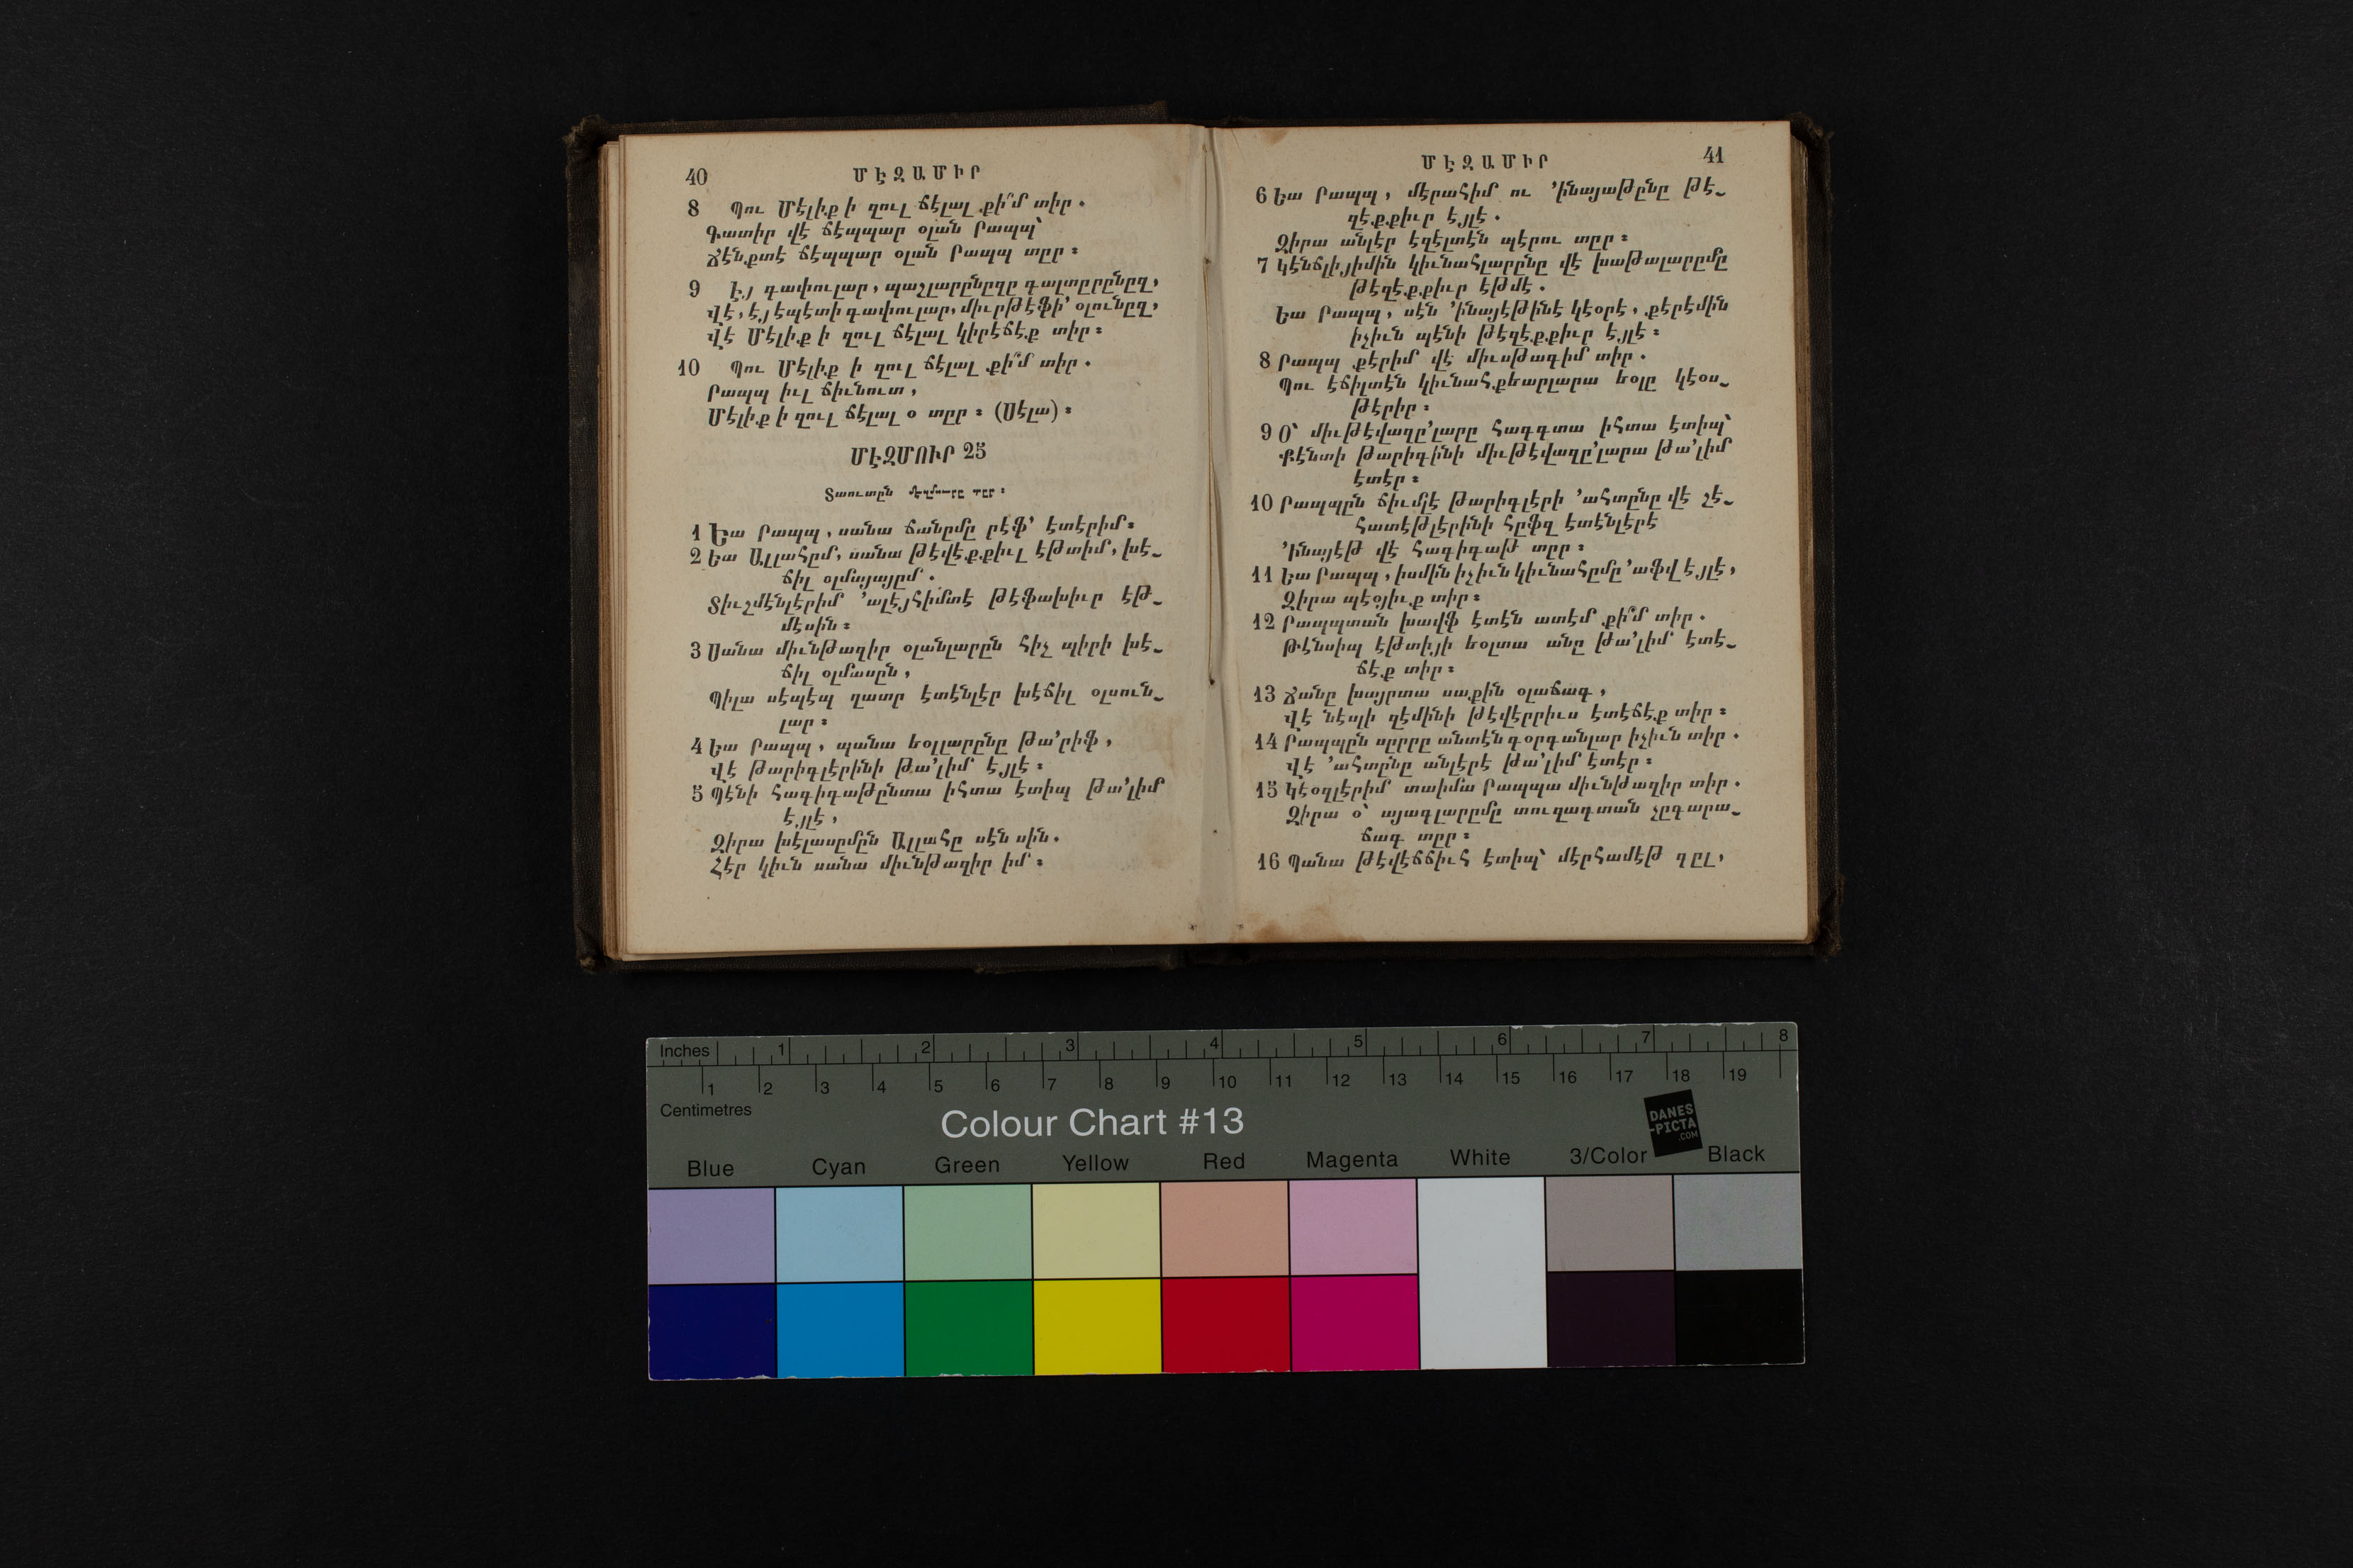 40
ՄԷԶԱՄԻՐ
8 Պու Մէլիք ի զուլ ճէլալ քի՞մ տիր.
Գատիր վէ ճէպպար օլան Րապպ՝
Ճէնքտէ ճէպպար օլան Րապպ տըր։
9 Էյ գափուլար, պաշլարընըզը գալտըրընըզ,
Վէ, էյ էպէտի գափուլար, միւրթէֆի՛ օլունըզ,
Վէ Մէլիք ի զուլ ճէլալ կիրէճէք տիր։
10 Պու Մէլիք ի զուլ ճէլալ քի՞մ տիր.
Րապպ իւլ ճիւնուտ,
Մէլիք ի զուլ ճէլալ օ տըր։ (Սէլա)։
ՄԷԶՄՈՒՐ 25
Տաուտըն մէզմուրը տըր։
1 Եա Րապպ, սանա ճանըմը րէֆ՛ էտէրիմ։
2 Եա Ալլահըմ, սանա թէվէքքիւլ էթտիմ, խէ֊
ճիլ օլմայայըմ.
Տիւշմէնլէրիմ ՚ալէյհիմտէ թէֆախիւր էթ֊
մէսին։
3 Սանա միւնթազիր օլանլարըն հիչ պիրի խէ֊
ճիլ օլմասըն,
Պիլա սէպէպ ղատր էտէնլէր խէճիլ օլսուն֊
լար։
4 Եա Րապպ, պանա եօլլարընը թա՛րիֆ,
Վէ թարիգլէրինի թա՛լիմ էյլէ։
5 Պէնի հագիգաթընտա իհտա էտիպ թա՛լիմ
էյլէ,
Զիրա խէլասըմըն Ալլահը սէն սին.
Հէր կիւն սանա միւնթազիր իմ։
41
ՄԷԶԱՄԻՐ
6 Եա Րապպ, մէրահիմ ու ՚ինայաթընը թէ֊
զէքքիւր էյլէ.
Զիրա անլէր էզէլտէն պէրու տըր։
7 Կէնճլիյիմին կիւնահլարընը վէ խաթալարըմը
թէզէքքիւր էթմէ.
Եա Րապպ, սէն ՚ինայէթինէ կէօրէ, քէրէմին
իչիւն պէնի թէզէքքիւր էյլէ։
8 Րապպ քէրիմ վէ միւսթագիմ տիր.
Պու էճիլտէն կիւնահքեարլարա եօլը կէօս֊
թէրիր։
9 Օ՝ միւթէվազը՛լարը հագգտա իհտա էտիպ՝
Քէնտի թարիգինի միւթէվազը՛լարա թա՛լիմ
էտէր։
10 Րապպըն ճիւմլէ թարիգլէրի ՚ահտընը վէ շէ֊
հատէթլէրինի հըֆզ էտէնլէրէ
՚Ինայէթ վէ հագիգաթ տըր։
11 Եա Րապպ, իսմին իչիւն կիւնահըմը ՚աֆվ էյլէ,
Զիրա պէօյիւք տիր։
12 Րապպտան խավֆ էտէն ատէմ քի՞մ տիր.
Թէնսիպ էթտիյի եօլտա անը թա՛լիմ էտէ֊
ճէք տիր։
13 Ճանը խայրտա սաքին օլաճագ,
Վէ նէսլի զէմինի թէվէրրիւս էտէճէք տիր։
14 Րապպըն սըրրը անտէն գօրգանլար իչիւն տիր.
Վէ ՚ահտընը անլէրէ թա՛լիմ էտէր։
15 Կէօզլէրիմ տաիմա Րապպա միւնթազիր տիր.
Զիրա օ՝ այագլարըմը տուզագտան չըգարա֊
ճագ տըր։
16 Պանա թէվէճճիւհ էտիպ՝ մէրհամէթ ղըլ,
Inches 1 2 3 4 5 6 7 8
1 2 3 4 5 6 7 8 9 10 11 12 13 14 15 16 17 18 19
Centimetres
Colour Chart #13
DANES
-PICTA
.COM
Blue Cyan Green Yellow Red Magenta White 3/Color Black